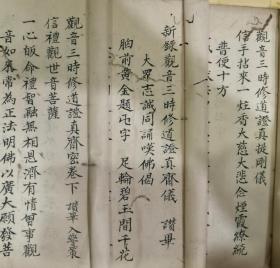 觀音三時修道證真提剛儀
信手拈來一炷香大慈大悲念煙霞繚繞
普便十方
新錄觀音三時修道證真齋儀 讚畢
大眾志誠同誦嘆佛偈
胸前黃金題卍字 足輪碧玉間千花
觀音三時修道證真齋密卷下 讚畢
信禮觀世音菩薩
一心皈命禮智融無相恩濟有情曾事觀
音如來常為正法明佛以廣大願發菩